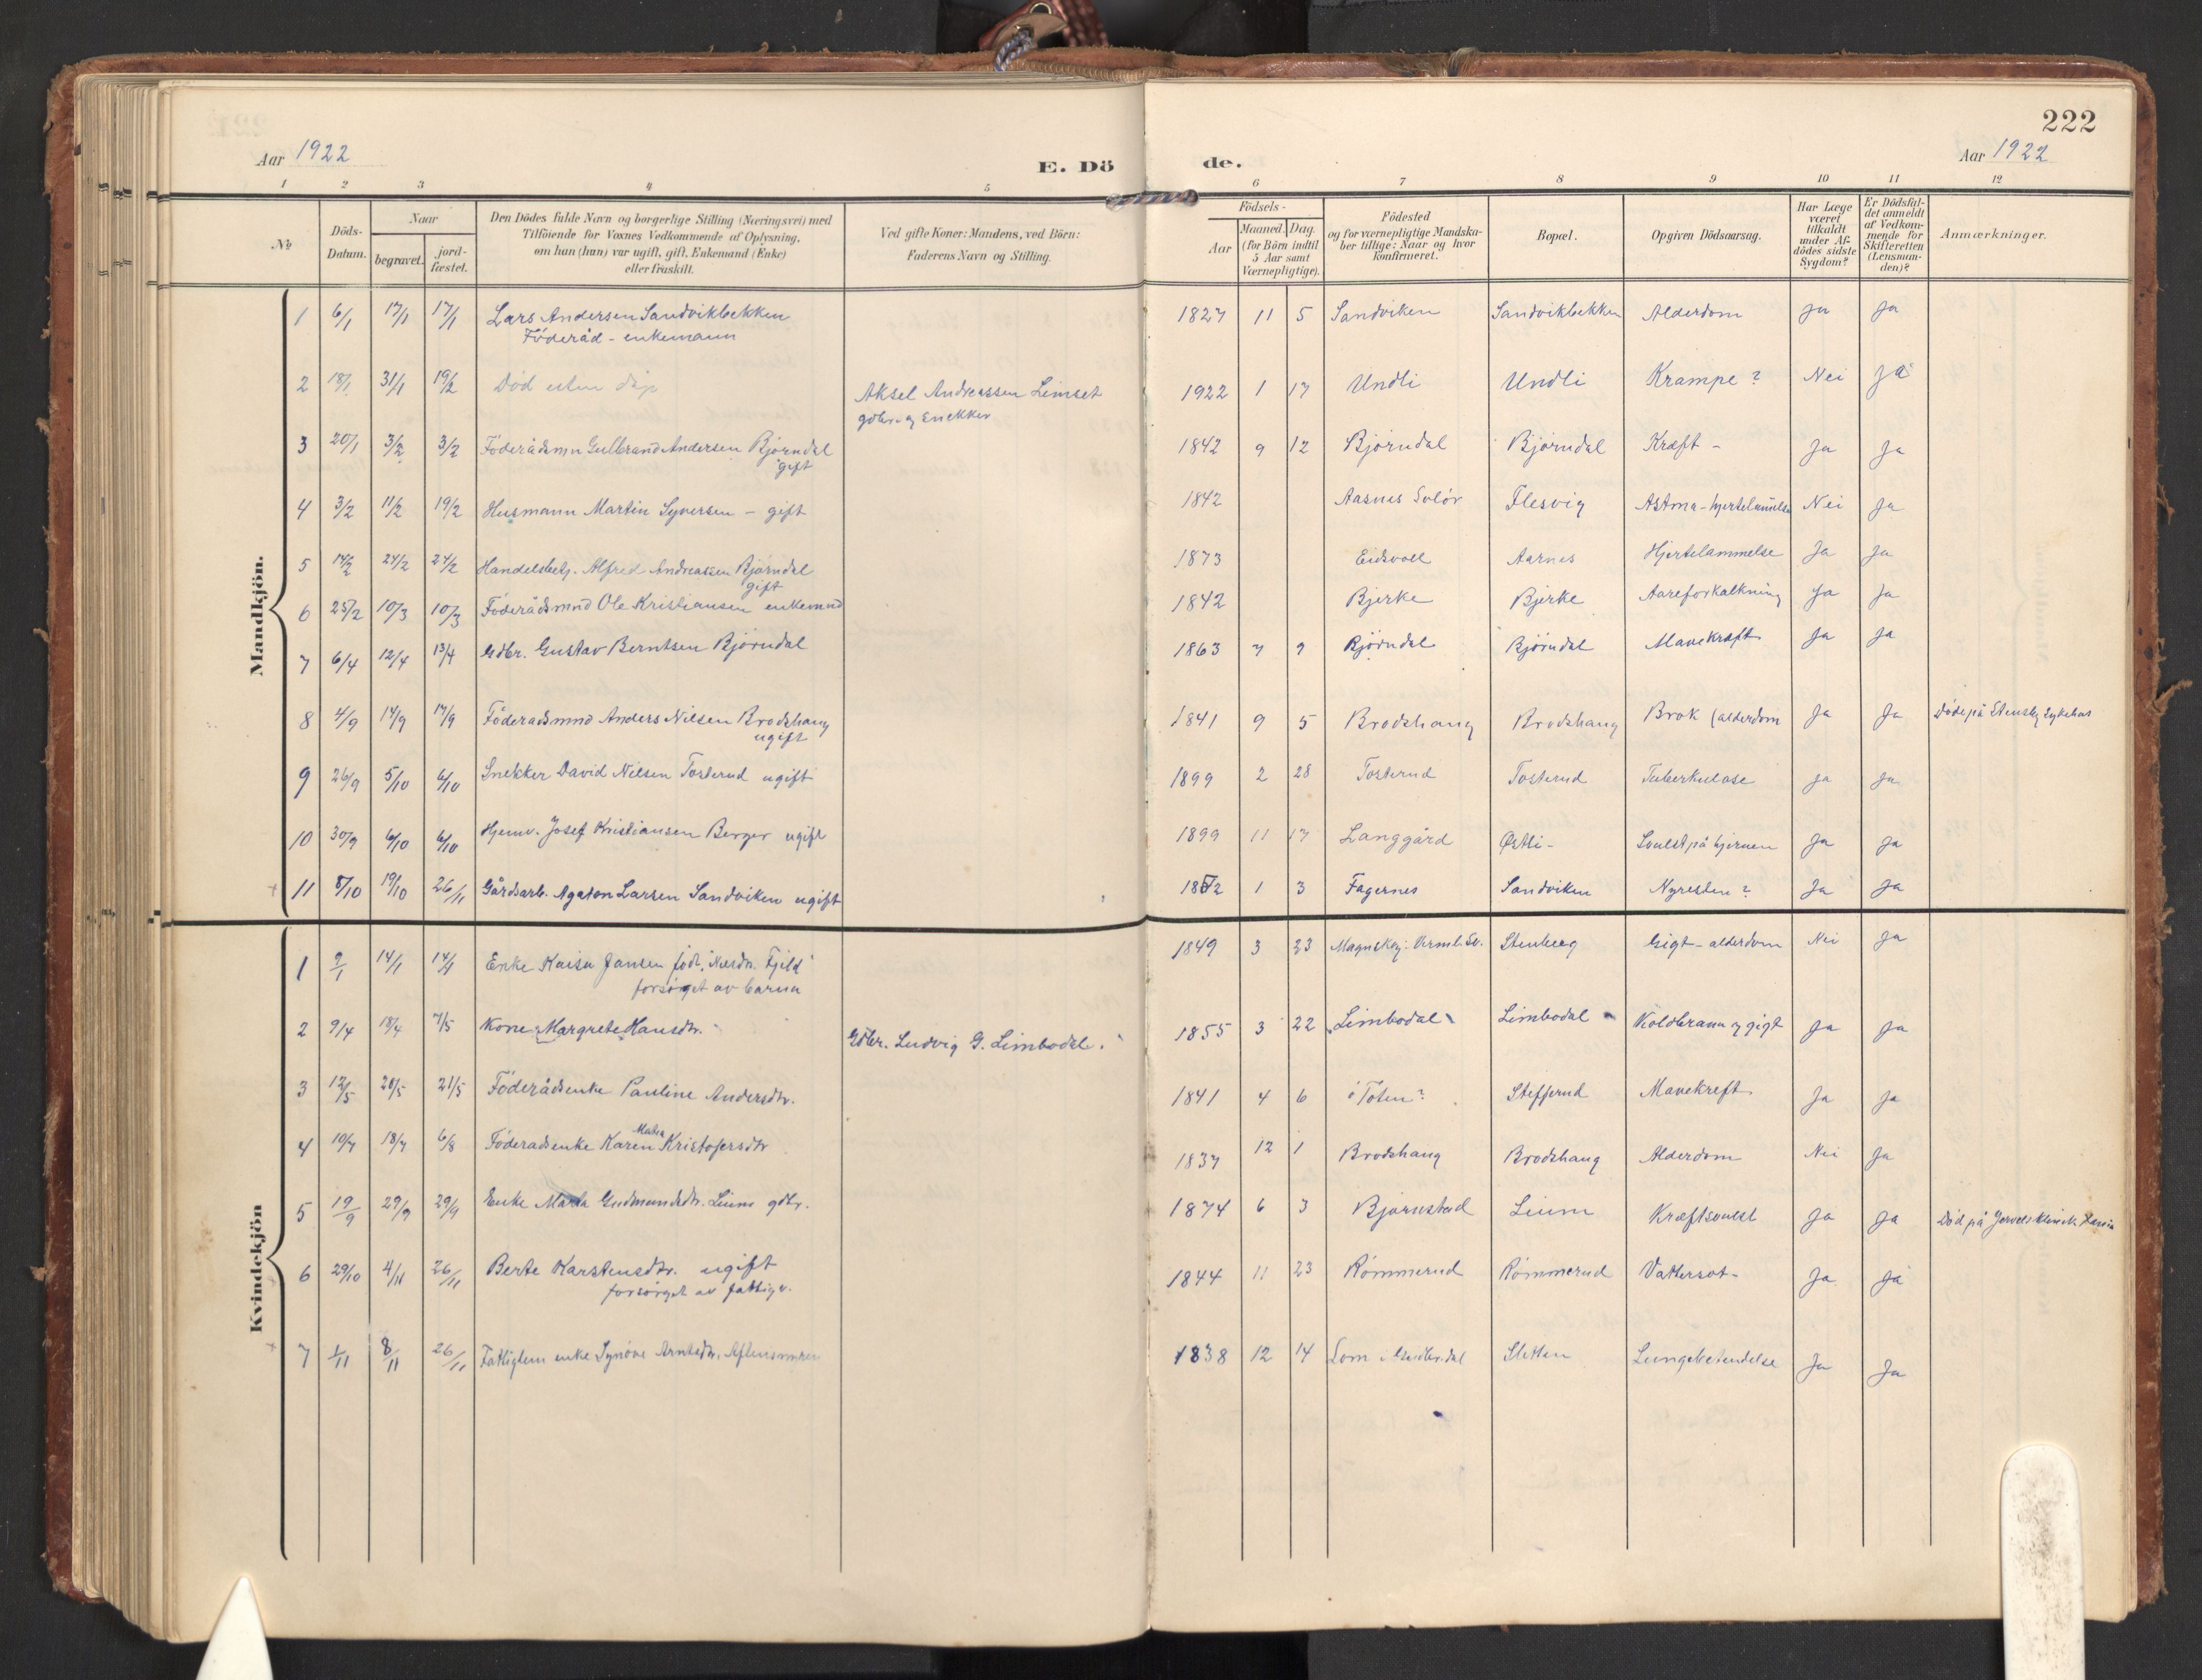 222
Aar 1922
E. Dö
de.
Aar 1922
1 2 3 4 5 6 7 8 9 10 11 12
No
Döds-
Datum.
Naar
begravet.
jord-
fæstet.
Den Dödes fulde Navn og borgerlige Stilling (Næringsvei) med
Tilföiende for Voxnes Vedkommende af Oplysning,
om han (hun) var ugift, gift, Enkemand (Enke)
eller fraskilt.
Ved gifte Koner: Mandens, ved Börn:
Faderens Navn og Stilling.
Födsels-
Aar
Maaned. Dag.
(for Börn indtil
5 Aar samt
Værnepligtige).
Födested
og for værnepligtige Mandska-
ber tillige: Naar og hvor
Konfirmeret.
Bopæl.
Opgiven Dödsaarsag.
Har Læge
været
tilkaldt
under Af-
dödes sidste
Sygdom?
Er Dödsfal-
det anmeldt
af Vedkom-
mende for
Skifteretten
(Lensman-
den)?
Anmærkninger.
Mandkjön.
1 6/1 17/1 17/1 Lars Andersen Sandvikbekken 1827 11 5 Sandviken Sandvikbekken Alderdom Ja Ja
Föderåd - enkemann
2 18/1 31/1 19/2 Död uten dåp Aksel Andreassen Limset 1922 1 17 Undli Undli Krampe? Nei Ja
gdbr. og snekker
3 20/1 3/2 3/2 Föderådsmn Gulbrand Andersen Björndal 1842 9 12 Björndal Björndal Kræft - Ja Ja
gift
4 3/2 11/2 19/2 Husmann Martin Syversen - gift 1842 Aasnes Solör Flesvig Astma - hjertelammelse Nei Ja
5 14/2 24/2 24/2 Handelsbetj. Alfred Andreassen Björndal 1873 Eidsvoll Aarnes Hjertelammelse Ja Ja
gift
6 25/2 10/3 10/3 Föderådsmnd Ole Kristiansen enkemnd 1842 Bjerke Bjerke Aareforkalkning Ja Ja
7 6/4 12/4 13/4 Gdbr. Gustav Berntsen Björndal 1863 7 9 Björndal Björndal Mavekræft Ja Ja
8 4/9 14/9 14/9 Föderadsmnd Anders Nilsen Brodshaug 1841 9 5 Brodshaug Brodshaug Brok (alderdom Ja Ja Döde på Stensby Sykehus
ugift
9 26/9 5/10 6/10 Snekker David Nilsen Tosterud ugift 1899 2 28 Tosterud Tosterud Tuberkulose Ja Ja
10 30/9 6/10 6/10 Hjemv. Josef Kristiansen Berger ugift 1899 11 17 Langgård Östli - Svulst på hjernen Ja Ja
11 8/10 19/10 26/11 Gårdsarb. Agaton Larsen Sandviken ugift 1852 1 3 Fagernes Sandviken Nyresten? Ja Ja
Kvindekjön
1 9/1 14/1 14/1 Enke Kaisa Jansen född 1849 3 23 Stenberg Gigt - alderdom Nei Ja
forsörget av barna
2 9/4 18/4 7/5 Kone Margrete Hansdtr. Gdbr. Ludvig G. Limbodal. 1855 3 22 Limbodal Limbodal Koldbrann og gigt Ja Ja
3 12/5 20/5 21/5 Föderådsenke Pauline Andersdtr. 1841 4 6 Toten? Steffenrud Mavekreft Ja Ja
4 10/7 18/7 6/8 Föderadsenke Karen Maten Kristofersdtr 1837 12 1 Brodshaug Brodshaug Alderdom Nei Ja
5 19/9 29/9 29/9 Enke Marta Gudmundsdtr. Lium gdbr. 1874 6 3 Björnstad Lium Kræftsvulst Ja Ja Död på Jervels klinik
6 29/10 4/11 26/11 Berte Karstensdtr. ugift 1844 11 23 Römmerud Römmerud Vattersot - Ja Ja
forsörget av fattigv.
7 1/11 8/11 26/11 Fattiglem enke Synöve Arntsdtr. 1838 12 14 Lom i Gudbr.dal Sletten Lungebetendelse Ja Ja